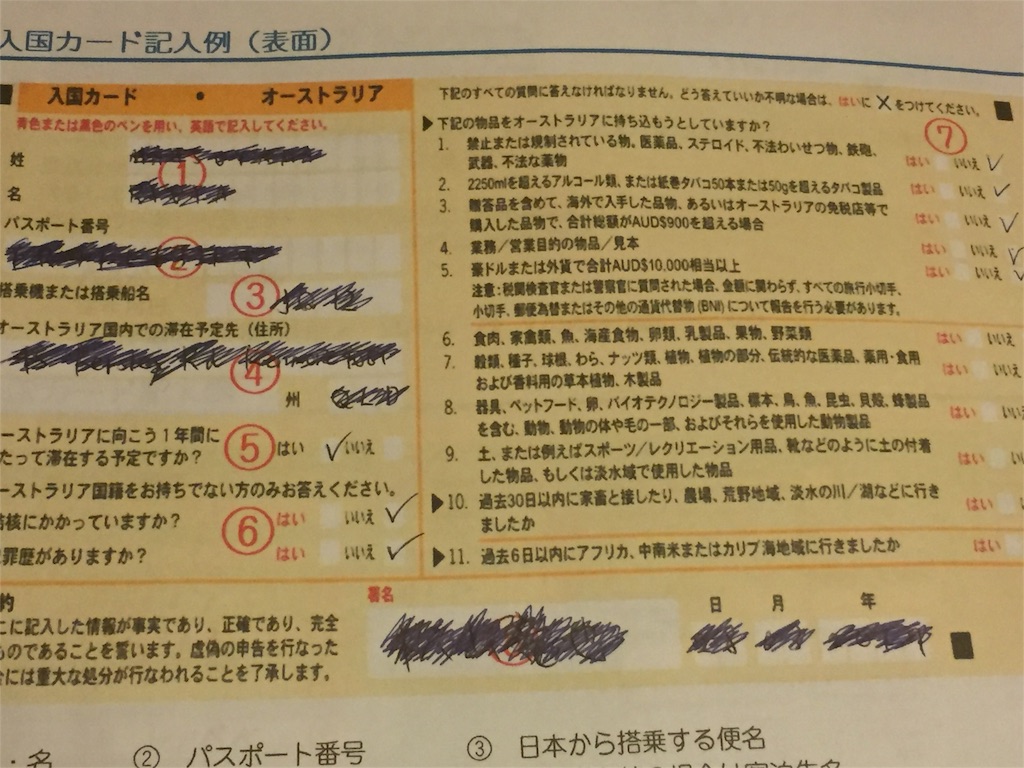 入国カード記入例（表面）
入国カード ・ オーストラリア
青色または黒色のペンを用い、英語で記入してください。
姓
①
名
パスポート番号
②
搭乗機または搭乗船名
③
オーストラリア国内での滞在予定先（住所）
④
州
ーストラリアに向こう1年間に
たって滞在する予定ですか？
⑤ はい ✓ いいえ
ーストラリア国籍をお持ちでない方のみお答えください。
核にかかっていますか？
⑥ はい いいえ ✓
罪歴がありますか？ はい いいえ ✓
下記のすべての質問に答えなければなりません。どう答えていいか不明な場合は、はいに X をつけてください。
▶下記の物品をオーストラリアに持ち込もうとしていますか？
⑦
1. 禁止または規制されている物。医薬品、ステロイド、不法わいせつ物、鉄砲、
武器、不法な薬物 はい いいえ ✓
2. 2250mlを超えるアルコール類、または紙巻タバコ50本または50gを超えるタバコ製品 はい いいえ ✓
3. 贈答品を含めて、海外で入手した品物、あるいはオーストラリアの免税店等で
購入した品物で、合計総額がAUD$900を超える場合 はい いいえ ✓
4. 業務／営業目的の物品／見本 はい いいえ ✓
5. 豪ドルまたは外貨で合計AUD$10,000相当以上 はい いいえ ✓
注意：税関検査官または警察官に質問された場合、金額に関わらず、すべての旅行小切手、
小切手、郵便為替またはその他の通貨代替物(BNI)について報告を行う必要があります。
6. 食肉、家禽類、魚、海産食物、卵類、乳製品、果物、野菜類 はい いいえ
7. 穀類、種子、球根、わら、ナッツ類、植物、植物の部分、伝統的な医薬品、薬用・食用
および香料用の草本植物、木製品 はい いいえ
8. 器具、ペットフード、卵、バイオテクノロジー製品、標本、鳥、魚、昆虫、貝殻、蜂製品
を含む、動物、動物の体や毛の一部、およびそれらを使用した動物製品 はい いいえ
9. 土、または例えばスポーツ／レクリエーション用品、靴などのように土の付着
した物品、もしくは淡水域で使用した物品 はい いいえ
▶10. 過去30日以内に家畜と接したり、農場、荒野地域、淡水の川／湖などに行き
ましたか はい いい
▶11. 過去6日以内にアフリカ、中南米またはカリブ海地域に行きましたか はい
約
こに記入した情報が事実であり、正確であり、完全
ものであることを誓います。虚偽の申告を行なった
合には重大な処分が行なわれることを了承します。
署名
日 月 年
・名 ② パスポート番号 ③ 日本から搭乗する便名